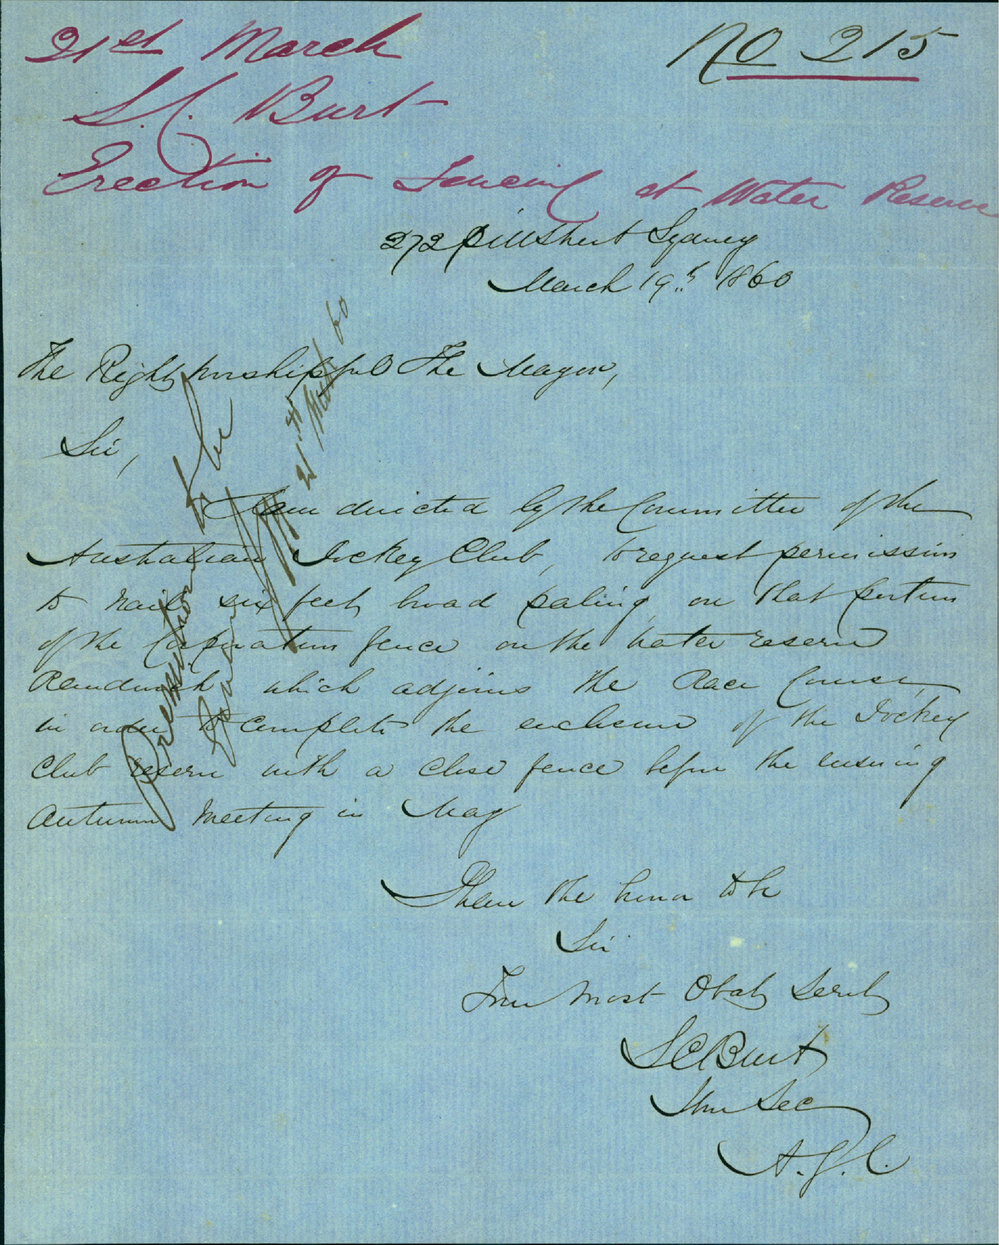 21st March
No 215
S. C. Burt
Erection of Fencing at Water Reserve
272 Pitt Street Sydney
March 19th 1860
The Right Worshipful The Mayor,
Sir,
I am directed by the Committee of the
Australian Jockey Club, to request permission
to nail six feet broad paling on that portion
of the Corporation fence on the Water reserve
Randwick which adjoins the Race Course,
in order to complete the enclosure of the Jockey
Club reserve with a close fence before the ensuing
Autumn Meeting in May
I have the honor to be
Sir
Your Most Obdt Servt
S C Burt
Hon Sec
A. J. C.
Permission to be
21st March 60